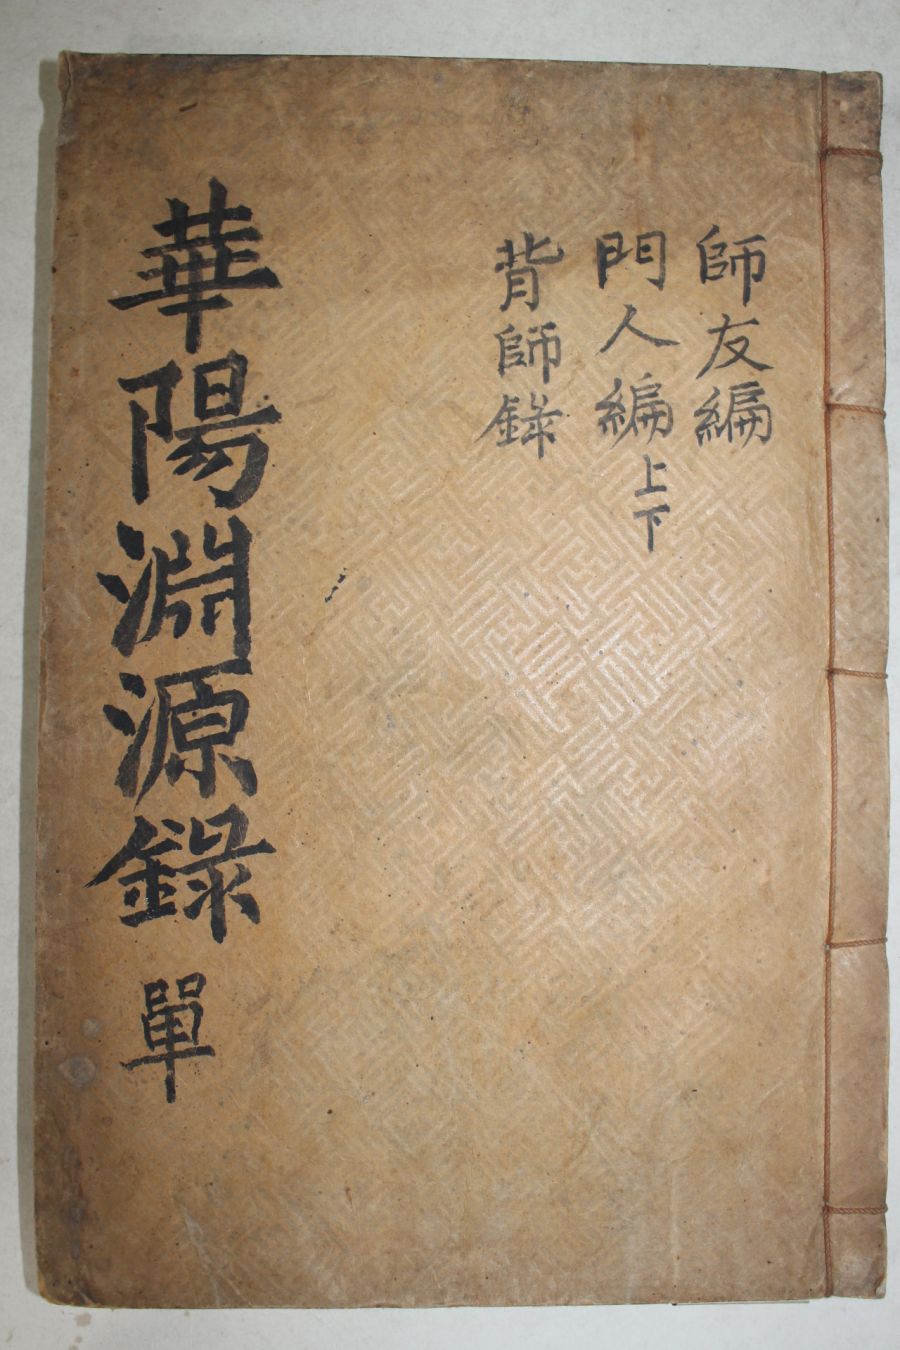 師友編
門人編上下
背師錄
華陽淵源錄 單